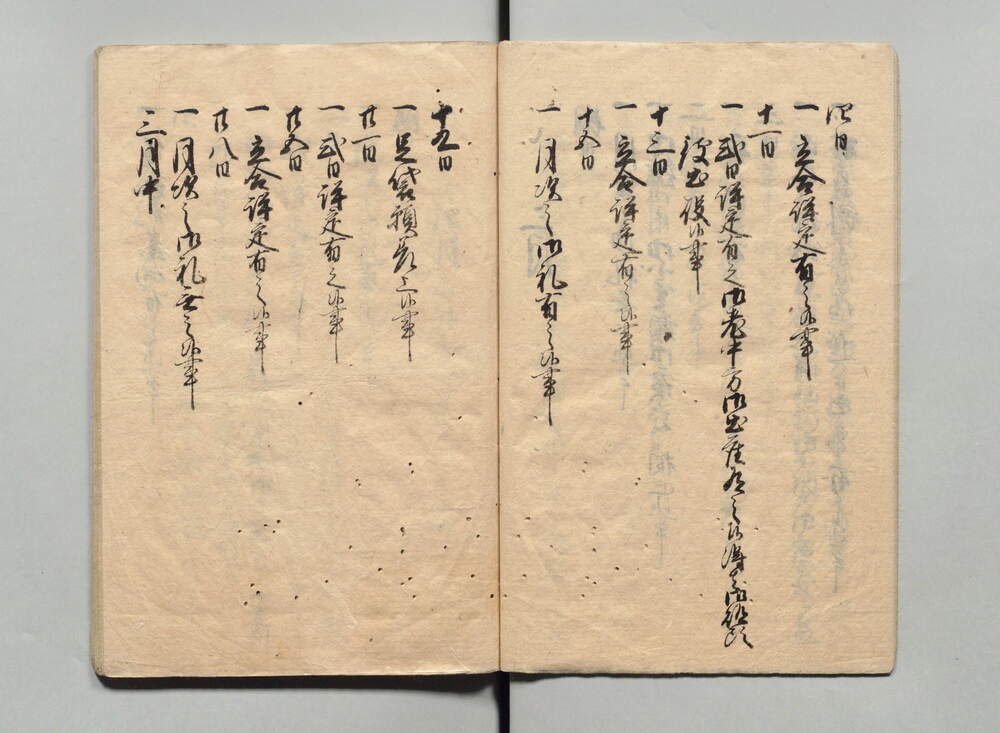 四日
一 立合評定有之候事
十一日
一 式日評定有之御老中方御出座有之候得者御徒頭
罷出候事
十三日
一 立合評定有之候事
十五日
一 月次之御礼有之候事
十九日
一 足袋願差上候事
廿一日
一 式日評定有之候事
廿五日
一 立合評定有之候事
廿八日
一 月次之御礼無之候事
三月中